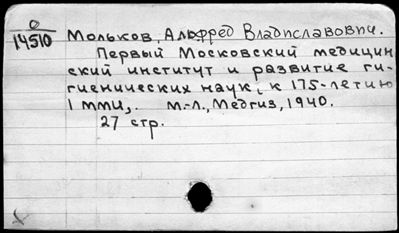 0
14510
Мольков, Альфред Владиславович.
Первый Московский медицин
ский институт и развитие ги-
гиенических наук, к 175-летию
1 ММИ,. М.-Л., Медгиз, 1940.
27 стр.